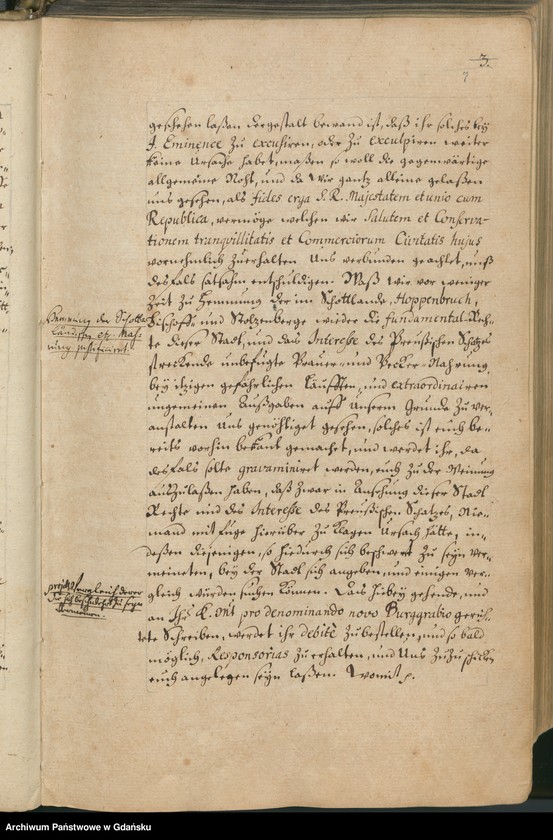 3.
7
geschehen laßen dergestalt bewand ist, daß ihr solches bey
J. Eminence zu excusiren, oder zu exculpiren weiter
keine Ursache habet, maßen so woll die gegenwärtige
allgemeine Noht, und da wir gantz alleine gelaßen
uns gesehen, als fides erga S. R. Majestatem et unio cum
Republica, vermöge welchen wir Salutem et Conserva-
tionem tranqvillitatis et Commerciorum Civitatis hujus
vornehmlich zuerhalten Uns verbunden geachtet, uns
desfals satsahm entschuldigen. Waß wir vor weniger
Zeit zu Hemmung der im Schottlande, Hoppenbruch,
Bischoff- und Stolzenberge wieder die fundamental-Rech-
te dieser Stadt, und das Interesse des Preußischen Schatzes
streckende unbefugte Brauer- und Becker-Nahrung,
bey itzigen gefährlichen Läufften, und extraordinairen
ungemeinen Außgaben auff Unserm Grunde zu ver-
anstalten Uns genöhtiget gesehen, solches ist euch be-
reits vorhin bekant gemachet, und werdet ihr, da
desfals solte gravaminiret werden, euch zu der Meinung
außzulaßen haben, daß zwar in Ansehung dieser Stadt
Rechte und des Interesse des Preußischen Schatzes, Nie-
mand mit fuge hierüber zu klagen Ursach hätte, in-
deßen diejenigen, so hiedurch sich beschwert zu seyn ver-
meineten, bey der Stadt sich angeben, und einigen ver-
gleich würden suchen können. Das hiebey gehende, und
an Ihr K. Mt pro denominando novo Burggrabio gerich-
tete Schreiben, werdet ihr debitè zubestellen, und so bald
möglich, Responsorias zu erhalten, und Uns zuzuschicken
euch angelegen seyn laßen. Womit p.
der Schottl-
Archiwum Państwowe w Gdańsku